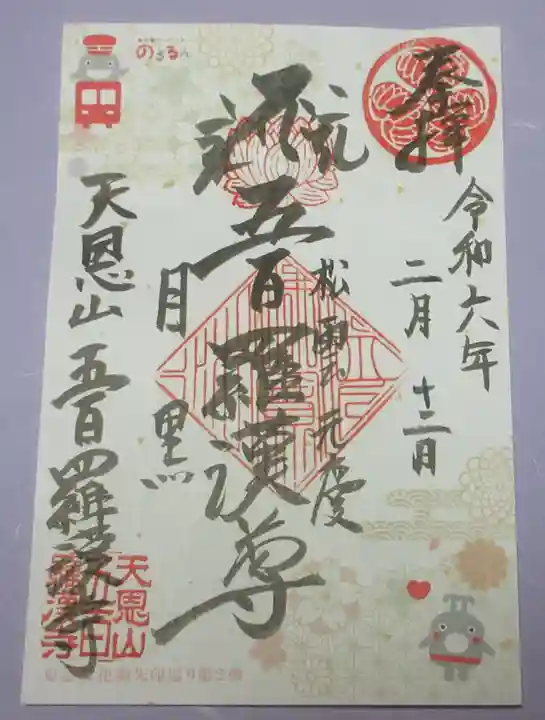 奉拝
令和六年
二月十二日
松雲元慶
五百羅漢尊
目黒
天恩山五百羅漢寺
のるるん
天恩山
五百
羅漢寺